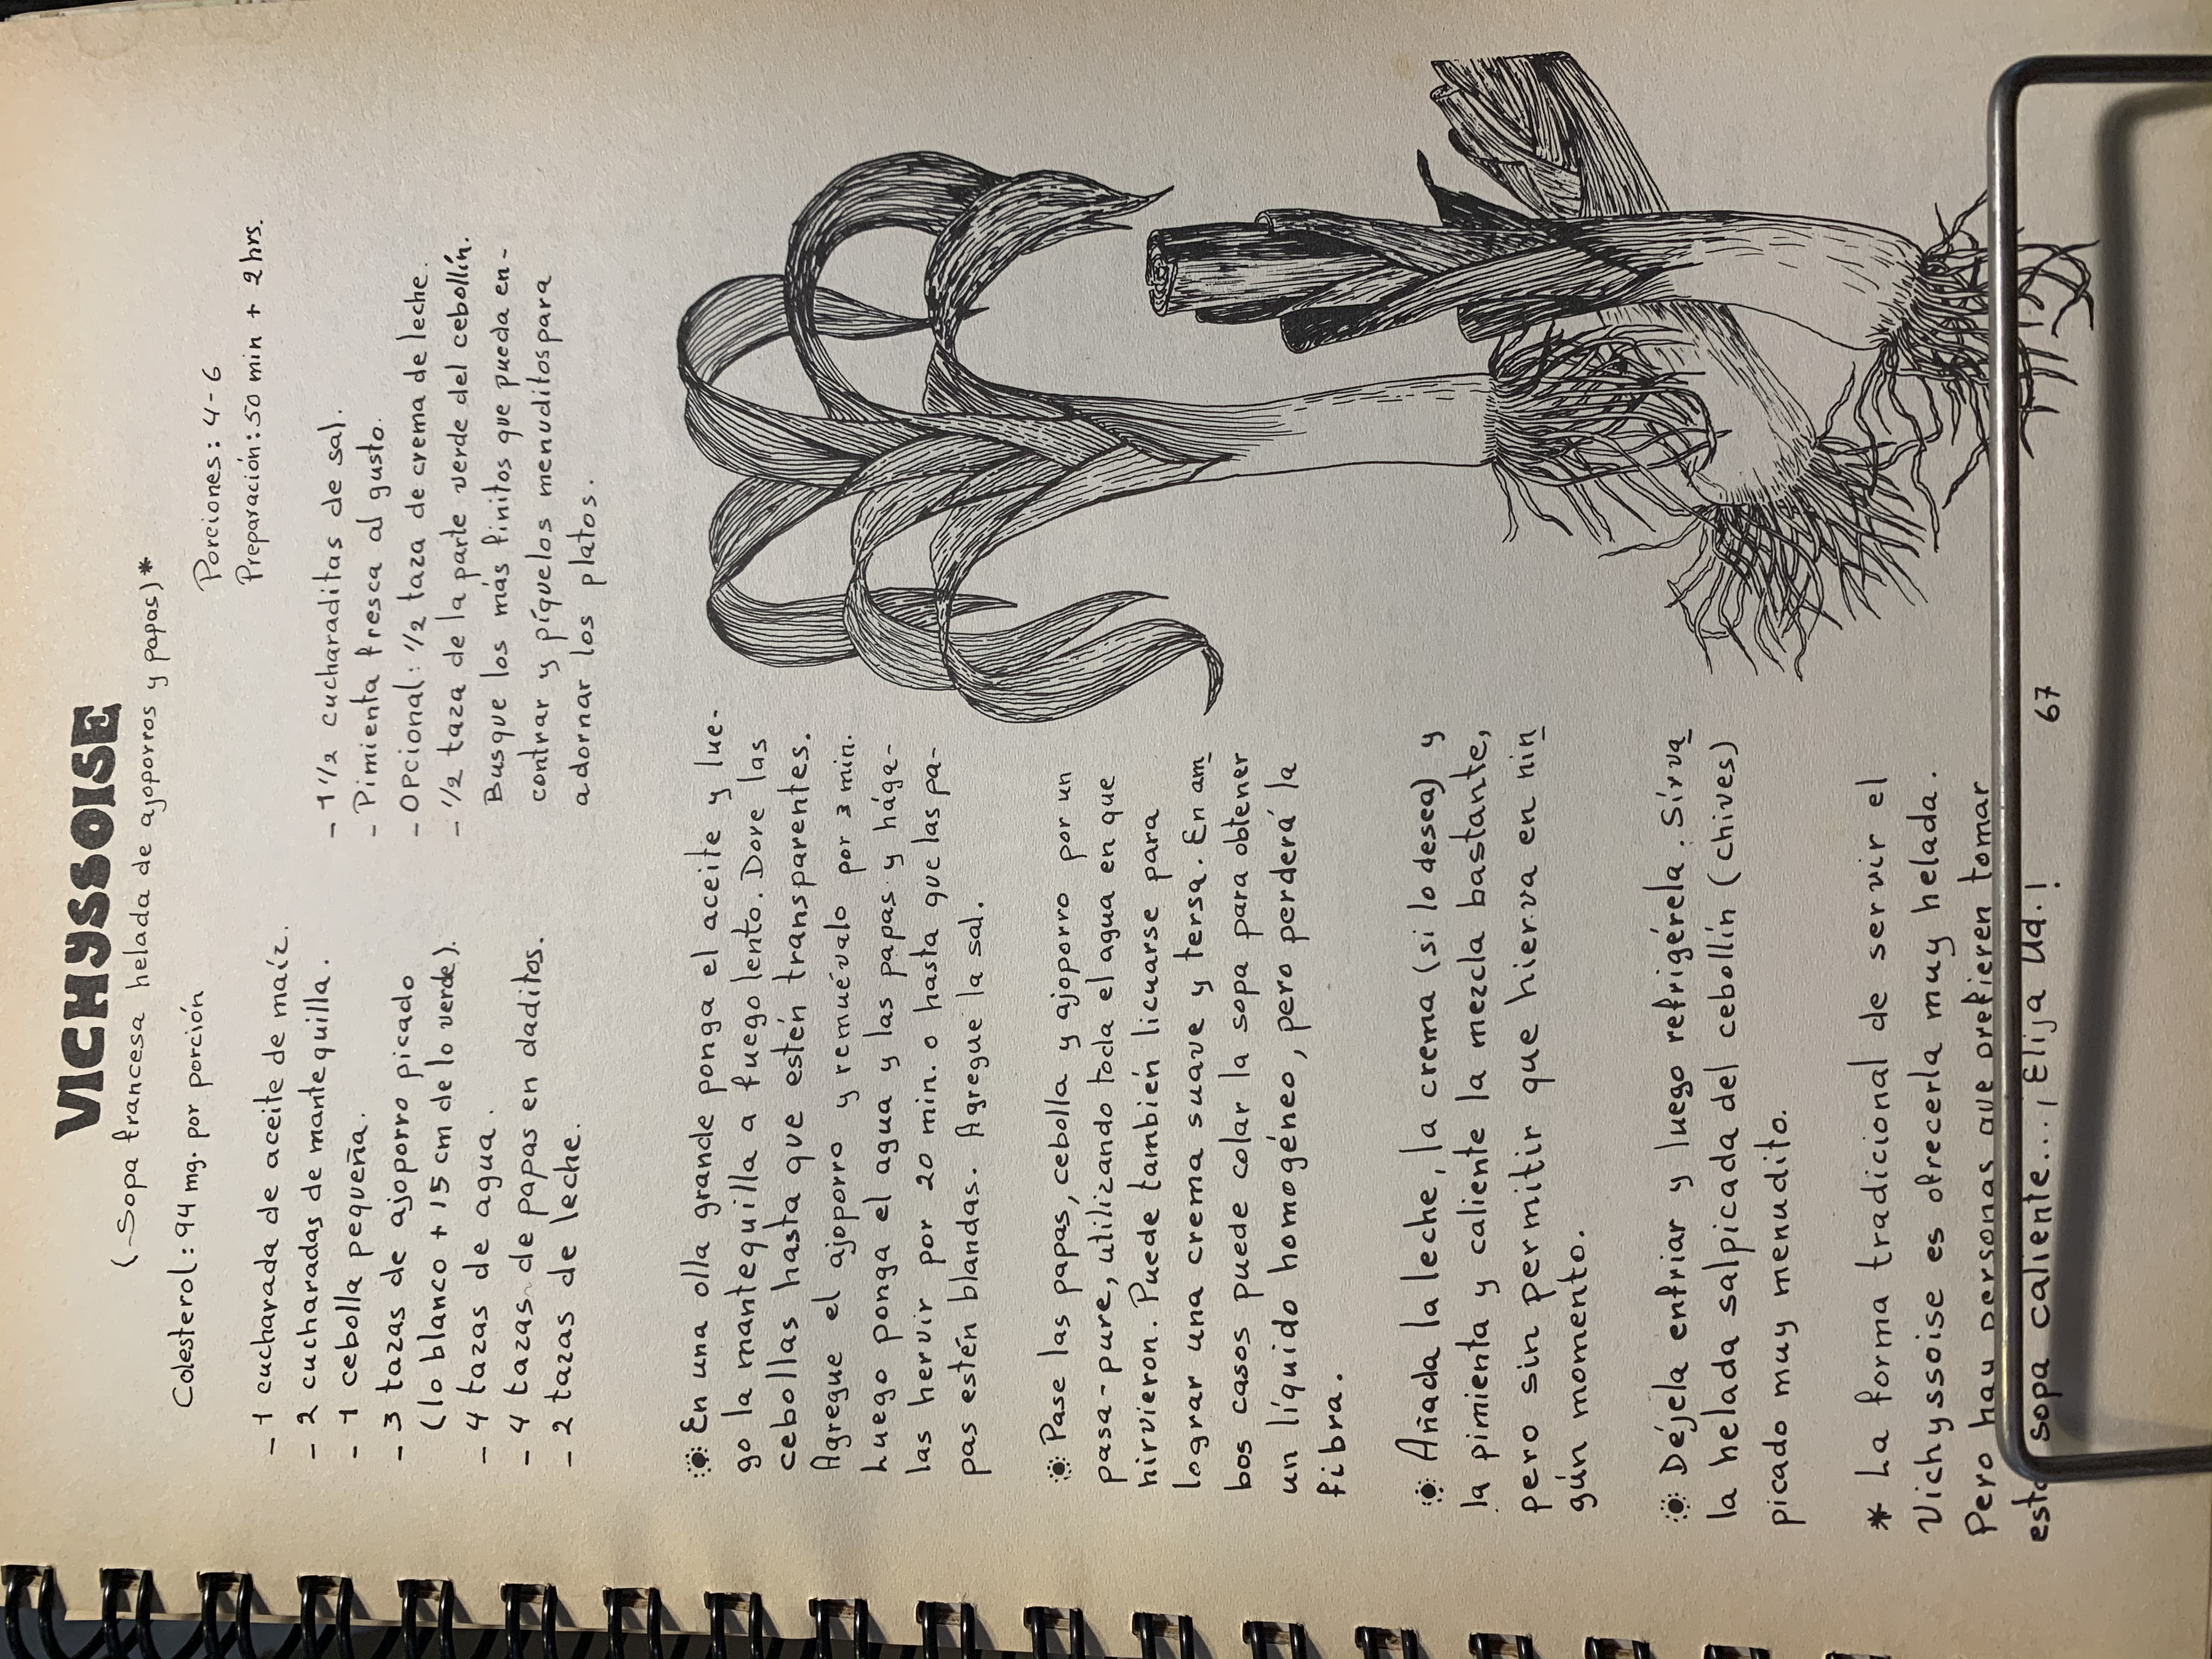 VICHYSSOISE
(Sopa francesa helada de ajoporros y papas)*
Colesterol: 94 mg. por porción
Porciones: 4-6
Preparación: 50 min + 2 hrs.
- 1 cucharada de aceite de maíz.
- 2 cucharadas de mantequilla.
- 1 cebolla pequeña.
- 3 tazas de ajoporro picado
(lo blanco + 15 cm de lo verde).
- 4 tazas de agua.
- 4 tazas de papas en daditos.
- 2 tazas de leche.
- 1 1/2 cucharaditas de sal.
- Pimienta fresca al gusto.
- Opcional: 1/2 taza de crema de leche.
- 1/2 taza de la parte verde del cebollín.
Busque los más finitos que pueda en-
contrar y píquelos menuditos para
adornar los platos.
En una olla grande ponga el aceite y lue-
go la mantequilla a fuego lento. Dore las
cebollas hasta que estén transparentes.
Agregue el ajoporro y remuévalo por 3 min.
Luego ponga el agua y las papas y hága-
las hervir por 20 min. o hasta que las pa-
pas estén blandas. Agregue la sal.
Pase las papas, cebolla y ajoporro por un
pasa-pure, utilizando toda el agua en que
hirvieron. Puede también licuarse para
lograr una crema suave y tersa. En am
bos casos puede colar la sopa para obtener
un líquido homogéneo, pero perderá la
fibra.
Añada la leche, la crema (si lo desea) y
la pimienta y caliente la mezcla bastante,
pero sin permitir que hierva en nin
gún momento.
Déjela enfriar y luego refrigérela. Sírva
la helada salpicada del cebollín (chives)
picado muy menudito.
* La forma tradicional de servir el
Vichyssoise es ofrecerla muy helada.
Pero hay personas que prefieren tomar
esta sopa caliente... ¡Elija Ud.!
67